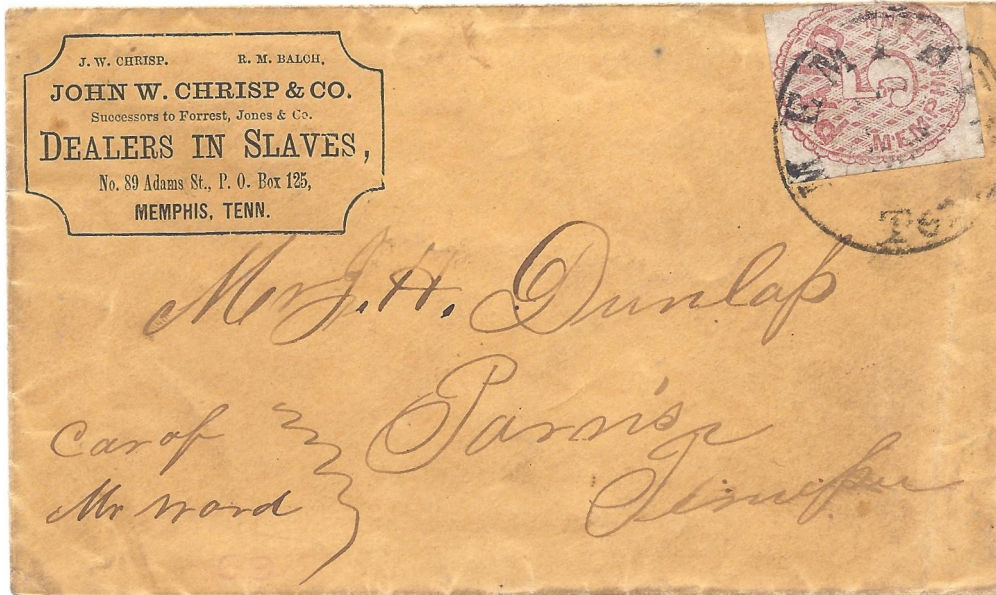 J. W. CHRISP. R. M. BALCH,
JOHN W. CHRISP & CO.
Successors to Forrest, Jones & Co.
DEALERS IN SLAVES,
No. 89 Adams St., P. O. Box 125,
MEMPHIS, TENN.
PAID
5
MEMPHIS
Mr J. H. Dunlap
Parris
Car of
Mr Word